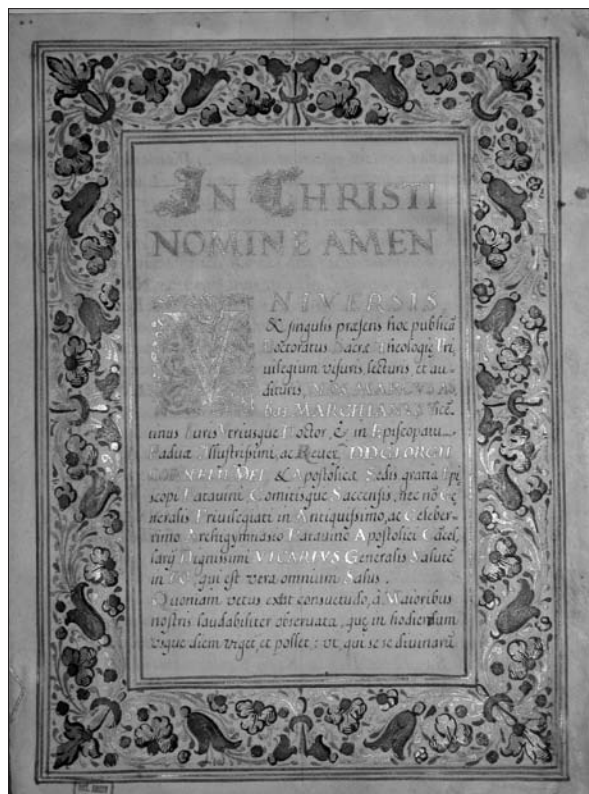 IN CHRISTI
NOMINE AMEN
VNIVERSIS
& singulis præsens hoc publicū
Doctoratus Sacræ Theologię Pri,
uilegium visuris, lecturis, et au-
dituris,
MARCHIANVS Vicē,
tinus Iuris Vtriusque Doctor, & in Episcopatu
Paduæ Illustrissimi, ac Reuer. D.D. GEORGII
& Apostolicæ Sedis gratia Epi
scopi Patauini Comitisque Saccensis, nec nō Ge
neralis Priuilegiati in Antiquissimo, ac Celeber-
rimo Archigymnasio Patauino Apostolici Cācel,
larij Dignissimi VICARIVS Generalis Salutē
in qui est vera omnium Salus.
Quoniam vetus extat consuetudo, à Maioribus
nostris laudabiliter obseruata, quę in hodiernam
vsque diem viget, et pollet: vt, qui se se diuinarū